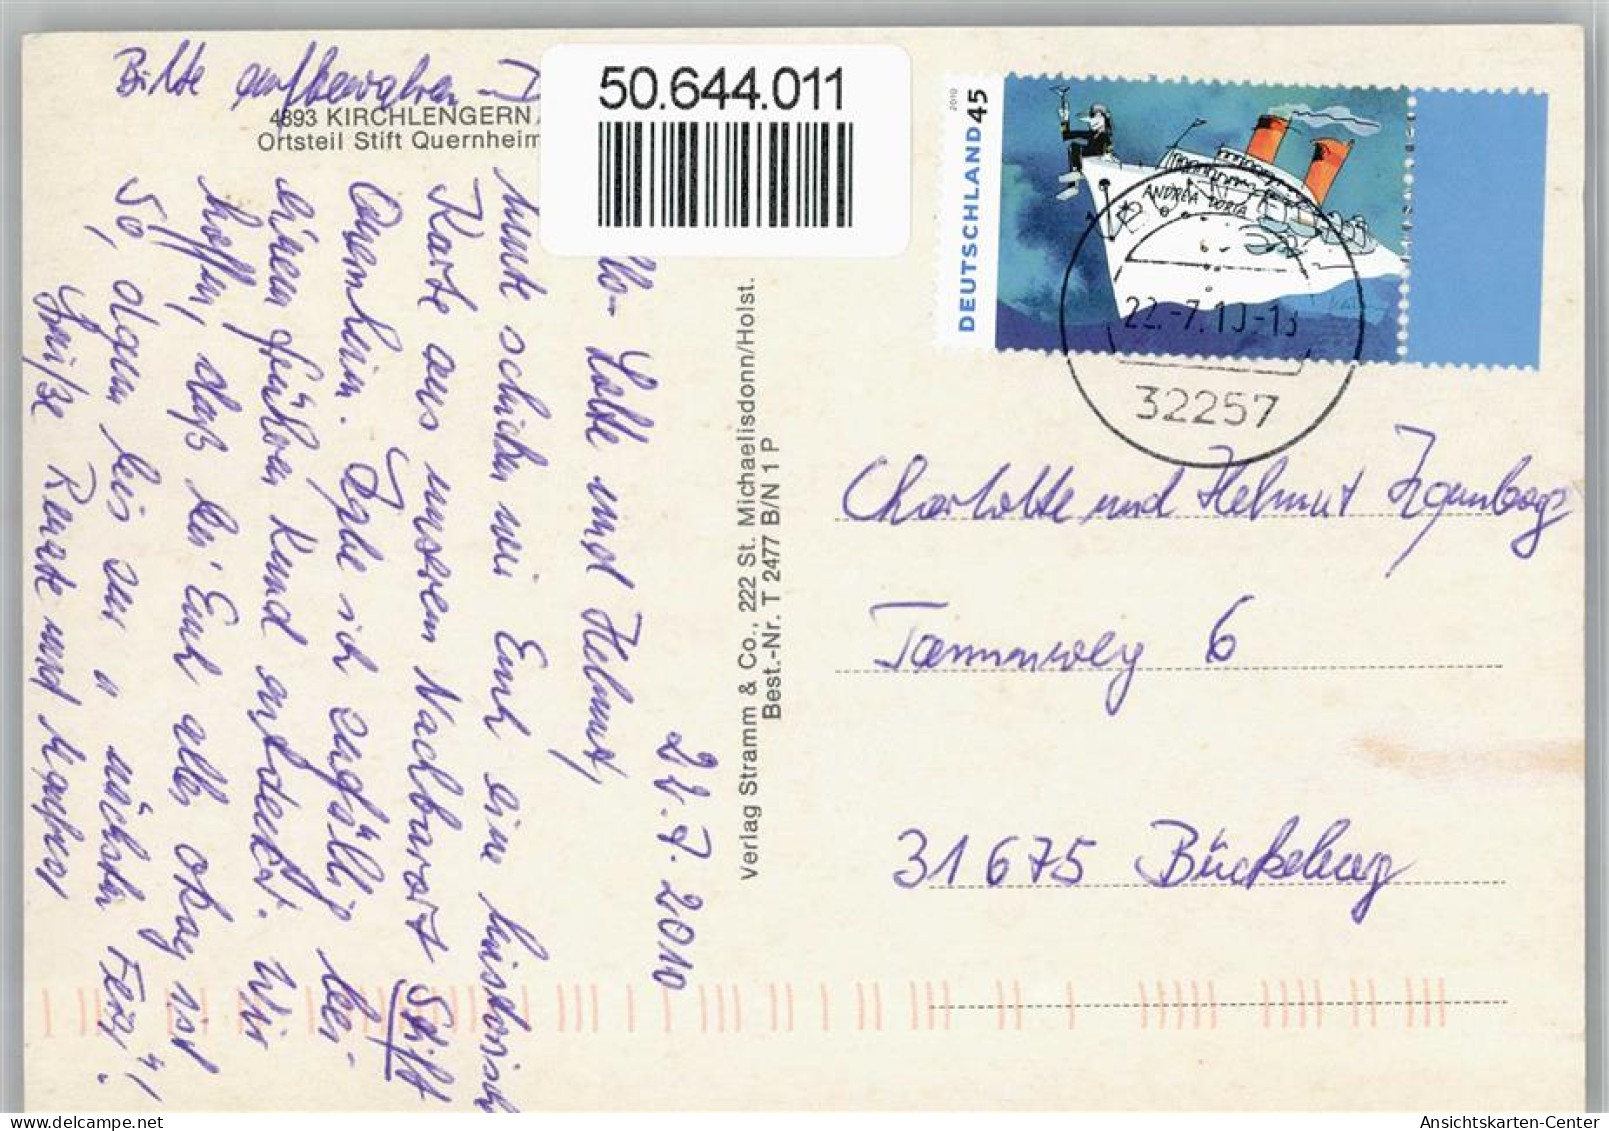 Bitte aufbewahren
4893 KIRCHLENGERN
Ortsteil Stift Quernheim
50.644.011
22.7.2010
Lotte und Helmut,
heute schicken wir Euch eine historische
Karte aus unserem Nachbarort Stift
Quernheim. Habe ich zufällig bei
einem früheren Kund entdeckt. Wir
hoffen, daß bei Euch alles okay ist
So, dann bis zur nächsten Fete!
Grüße Renate und
Verlag Stramm & Co., 222 St. Michaelisdonn/Holst.
Best.-Nr. T 2477 B/N 1 P
DEUTSCHLAND 45
2010
ANDREA DORIA
22.-7.10-13
32257
Charlotte und Helmut
Tannenweg 6
31675 Bückeburg
Ansichtskarten-Center